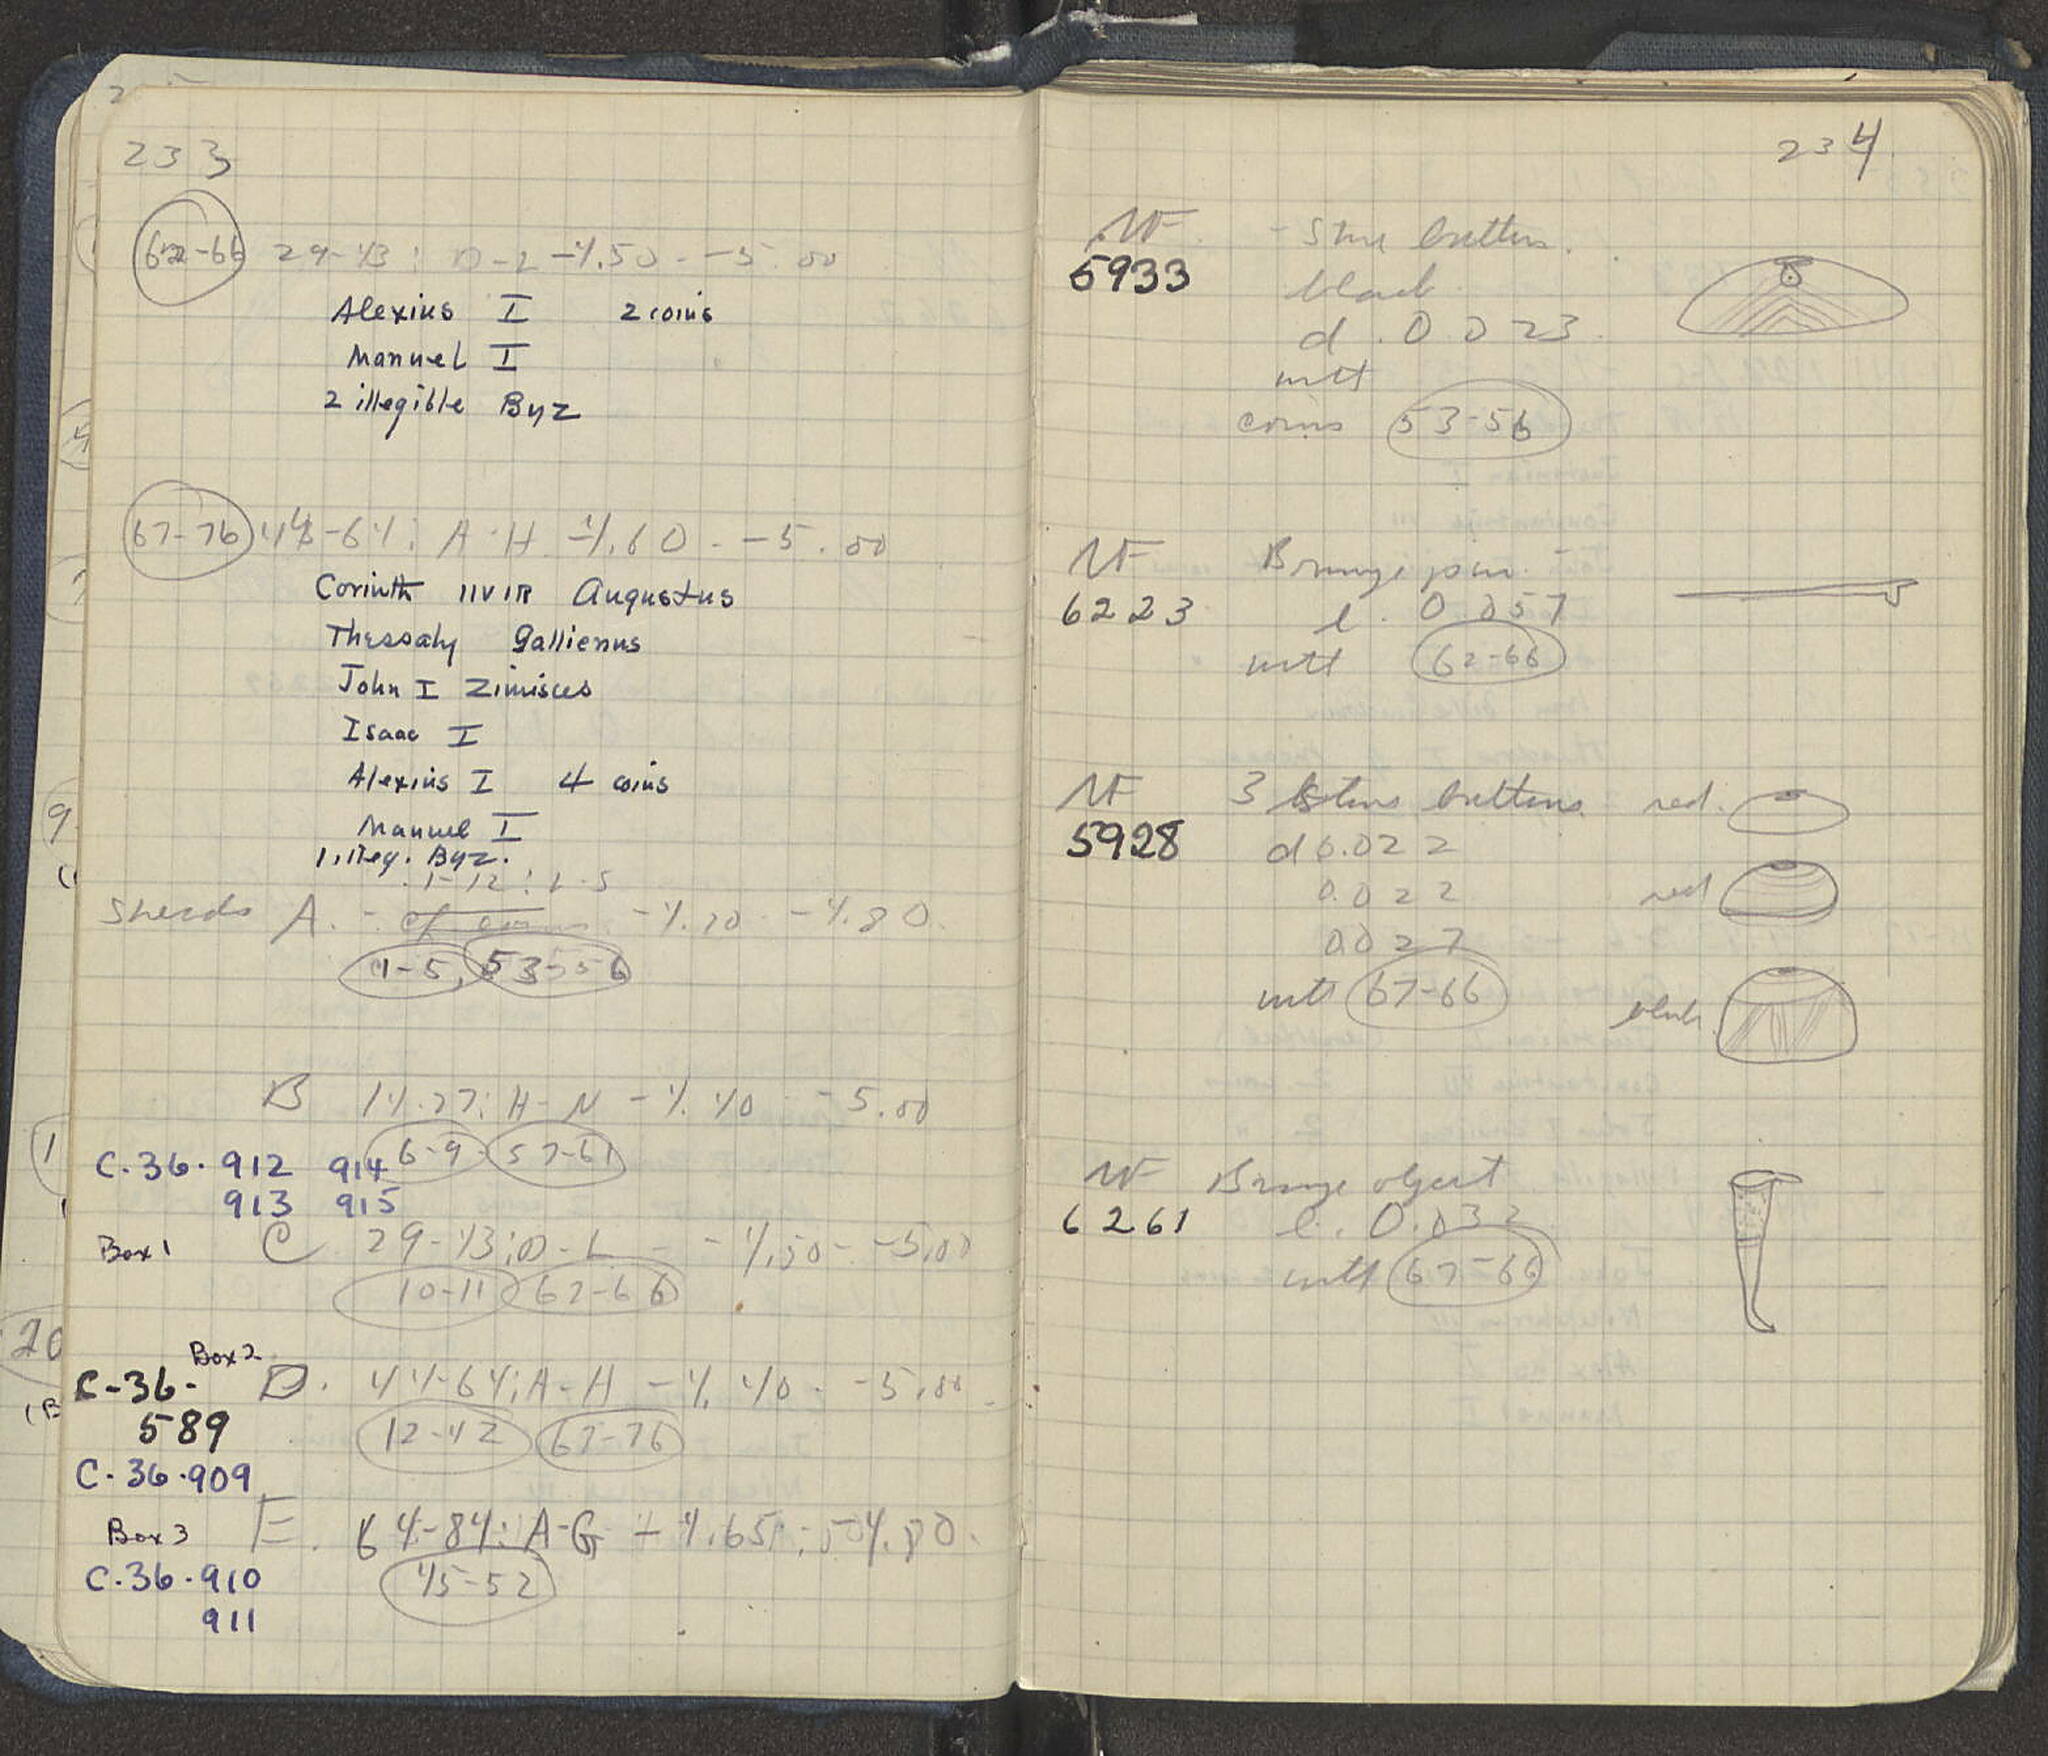 233
62-66 29-43: D-L -4.50 - -5.00
Alexius I 2 coins
Manuel I
2 illegible Byz
67-76 44-64: A-H -4.60 - -5.00
Corinth IIVIR Augustus
Thessaly Gallienus
John I Zimisces
Isaac I
Alexius I 4 coins
Manuel I
1 illeg. Byz.
1-12: L-S
Sherds A. - -4.70 - -4.80
1-5, 53-56
B 14-27: H-N -4.40 - -5.00
6-9 57-61
C-36-912 914
913 915
Box 1 C 29-43: D-L - -4.50 - -5.00
10-11 62-66
Box 2
C-36- D. 44-64: A-H -4.40 - -5.00
589 12-42 67-76
C-36-909
Box 3 E. 64-84: A-G -4.65 - -4.80.
C-36-910 45-52
911
234
MF - Stone button.
5933 black
d. 0.023.
with
coins 53-56
MF Bronze pin.
6223 l. 0.057
with 62-66
MF 3 Stone buttons. red.
5928 d 0.022
0.022 red
0.027
with 67-66 black.
MF Bronze object
6261 l. 0.032
with 67-66